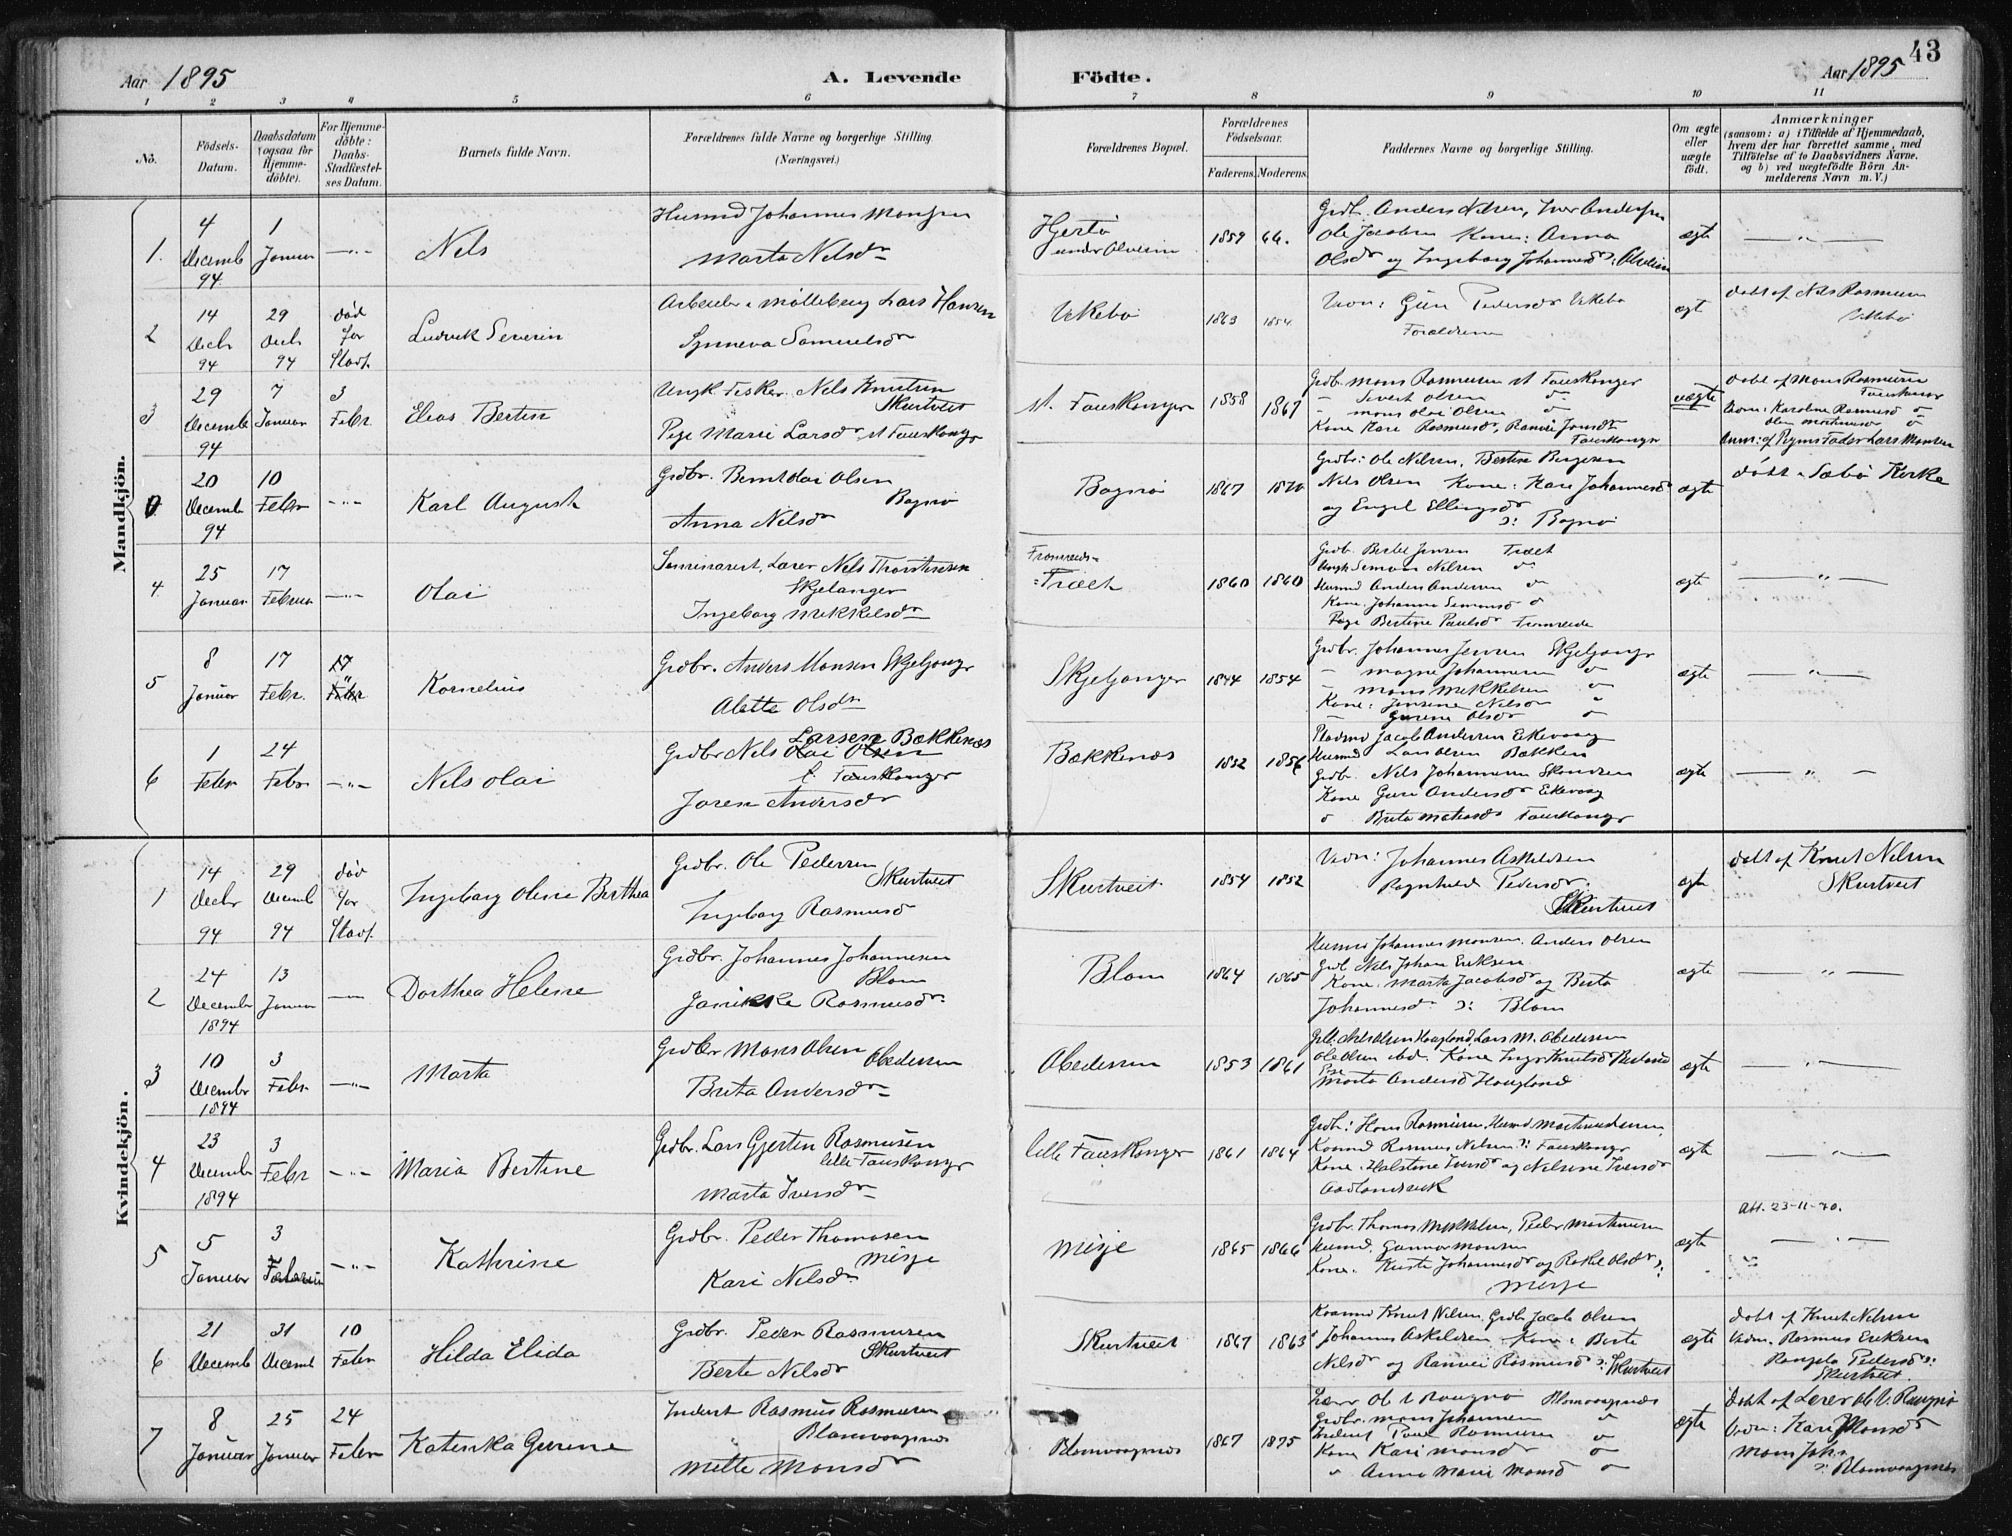 43
Aar 1895
A. Levende
Födte.
Aar 1895
1 2 3 4 5 6 7 8 9 10 11
No.
Födsels-
Datum.
Daabsdatum
(ogsaa for
Hjemme-
döbte).
For Hjemme-
döbte:
Daabs-
Stadfæstel-
ses Datum.
Barnets fulde Navn.
Forældrenes fulde Navne og borgerlige Stilling.
(Næringsvei.)
Forældrenes Bopæl.
Forældrenes
Födselsaar.
Faderens. Moderens.
Faddernes Navne og borgerlige Stilling.
Om ægte
eller
uægte
født.
Anmærkninger
(saasom: a) i Tilfælde af Hjemmedaab,
hvem der har forrettet samme, med
Tilföielse af to Daabsvidners Navne,
og b) ved uægtefödte Börn An-
melderens Navn m. V.)
Mandkjön.
1.
4
Decemb
94
1
Januar
Nels
Husmd Johannes Monsen
Marta Nelsdr
Hjertø
under Alvheim
1859 66.
Grdb. Anders Nelsen, Iver Andersen
Ole Jacobsen Kone: Anna
Olsdr og Ingeborg Johannesdr
ægte
2
14
Decbr
94
29
Decb
94
død
for
Stadf.
Ludvik Severin
Arbeider Lars Hansen
Synneva Samuelsdr
Vikebø
1863 1854
Vidn: Guri Pedersdr Vikebø
Forældrene
ægt
døbt af Nils Rasmusen
Vikebø
3
29
Decemb
94
7
Januar
3
Febr.
Elias Bertin
Ungk. Fisker. Nels Knutsen
Skurtveit
Pige Marie Larsdr, st Fauskanger
st. Fauskanger
1858 1867
Grdb. Mons Rasmusen st Fauskanger
" Sivert Olsen do
" Mons Olai Olsen do
Kone Kari Rasmusd, Ranvei Jonsdr
Fauskanger
uægte
døbt af Mons Rasmusen
Fauskanger
Vidn: Karoline Rasmusd do
Anm: af Pigens Fader Lars Monsen
0
20
Decemb
94
10
Febr
Karl August
Grdbr. Berntolai Olsen
Bognø
Anna Nelsdr
Bognø
1867 1870
Grdbr: Ole Nilsen, Bertin Birgesen
Nils Olsen Kone: Kari Johannesdr
og Engel Ellingsdr
ɔ: Bognø
ægte
døbt i Sæbø Kirke
4
25
Januar
17
Februar
Olai
Seminarist, Lærer Nels Thorstensen
Skjelanger
Ingeborg Mikkelsdr
Fromreide-
Træet
1860 1860
Grdb. Bertel Jensen Træet
Ungk Simon Nilsen do
Husmd Anders Andersen do
Kone Johanna Simonsd do
Pige Bertine Paulsdr Fromreide
ægte
5
8
Januar
17
Febr.
17
Febr
Kornelius
Grdbr. Anders Monsen Skjeljanger
Alette Olsdr
Skjeljanger
1844 1854
Grdbr. Johannes Jensen Skjeljanger
" Magne Johannesen do
" Mons Mikkelsen do
Kone: Jensine Nilsdr "
" Gurine Olsdr do
ægte
6
1
Febr
24
Febr
Nels Olai
Larsen Bækkenes
Grdbr Nels Olai Olsen
l. Fauskanger
Joren Andersdr
Bækkenes
1852 1856
Pladsmd Jacob Andersen Eikevaag
Husmd Lars Olsen Bækken
Grdb. Nels Johannesen
Kone Guri Andersdr Eikevaag
do Brita Matiasdr Fauskanger
ægte
Kvindekjön.
1
14
Decbr
94
29
Decemb
94
død
for
Stadf.
Ingeborg Oline Berthea
Grdbr. Ole Pedersen
Skurtveit
Ingeborg Rasmusd
Skurtveit
1854 1852
Vidn: Johannes Askeldsen
Ragnhild Pedersdr.
Skurtveit
ægte
døbt af Knut Nilsen
Skurtveit
2
24
December
1894
13
Januar
Dorthea Helene
Grdbr. Johannes Johannesen
Blom
Janikke Rasmusdr.
Blom
1864 1865
Husmd Johannes Monsen. Anders Olsen
Grdb Nels Johan Eriksen.
Kone. Marta Jacobsdr og Berta
Johannesd ɔ: Blom
ægte
3
10
Decembr
1894
3
Febr
Marta
Grdbr Mons Olsen
Obedersen
Brita Andersdr
Obedersen
1853 1861
Marta Andersd Haugland
ægte
4
23
December
1894
3
Febr
Maria Bertine
Grdb. Lars Gjertin Rasmusen
lille Fauskanger
Marta Iversdr
lille Fauskanger
1861 1864
Grdb: Hans Rasmusen.
Rasmus Nilsen ɔ: Fauskanger
Kone. Halstine Iversdr og Nilsine Iversdr
Aadlandsvik
ægte
Att. 23-11-40.
5
5
Januar
3
Februar
Kathrine
Grdbr. Peder Thomasen
Misje
Kari Nilsdr
Misje
1865 1866
Grdbr. Thomas Mikkelsen, Peder Martinusen
Husmd. Gunnar Monsen
Kone. Kirsti Johannesdr og Rakel Olsdr ɔ:
Misje
ægte
6
21
Decemb
31
Decemb
10
Febr
Hilda Elida
Grdbr. Peder Rasmusen
Skurtveit
Berte Nilsdr
Skurtveit
1867 1863
Knut Nilsen. Grdb Jacob Olsen
Johannes Askeldsen Kone: Berte
Nilsdr og Ranvei Rasmusd ɔ: Skurtveit
ægte
døbt af Knut Nilsen
Vidn. Rasmus Eriksen
Pedersd ɔ:
Skurtveit.
7
8
Januar
25
Januar
24
Febr
Katinka Gurine
Inderst Rasmus Rasmusen
Blomvaagnes
Mette Monsdr
Blomvaagnes
1867 1875
Lærer Ole Blomvaagnes
Grdbr. Mons Johannesen do
Inderst Paul Rasmusen do
Kone Kari Monsdr do
" Anna Marie Monsd do
ægte
døbt af Lærer
Vidn: Kari Monsd
Mons Joh.
ɔ: Blomvaagnes